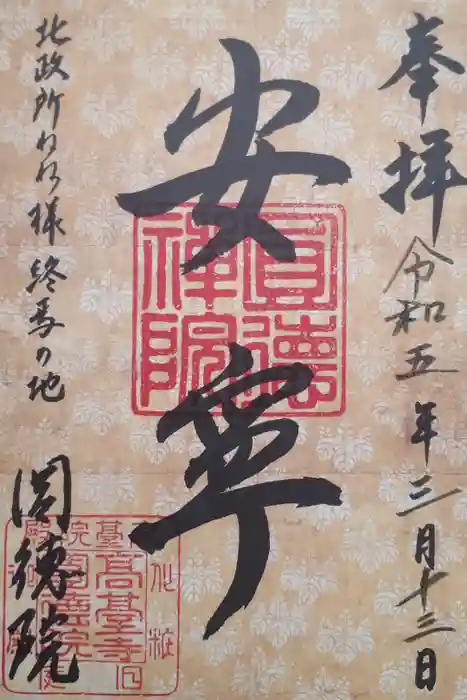 奉拝 令和五年三月十三日
安寧
北政所ねね様終焉の地
圓徳院
圓徳
禅院
高臺寺
圓德院